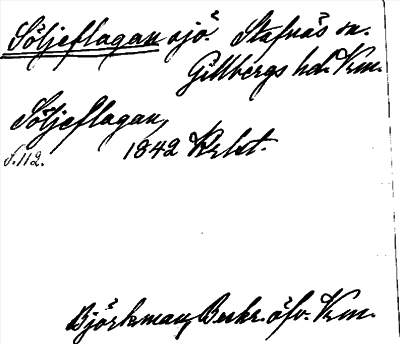 Söljeflagan sjö. Stafnäs sn.
Gillbergs hd. Vrm.
Söljeflagan,
S.112. 1842 Krlst.
Björkman, Beskr. öfv. Vrm.